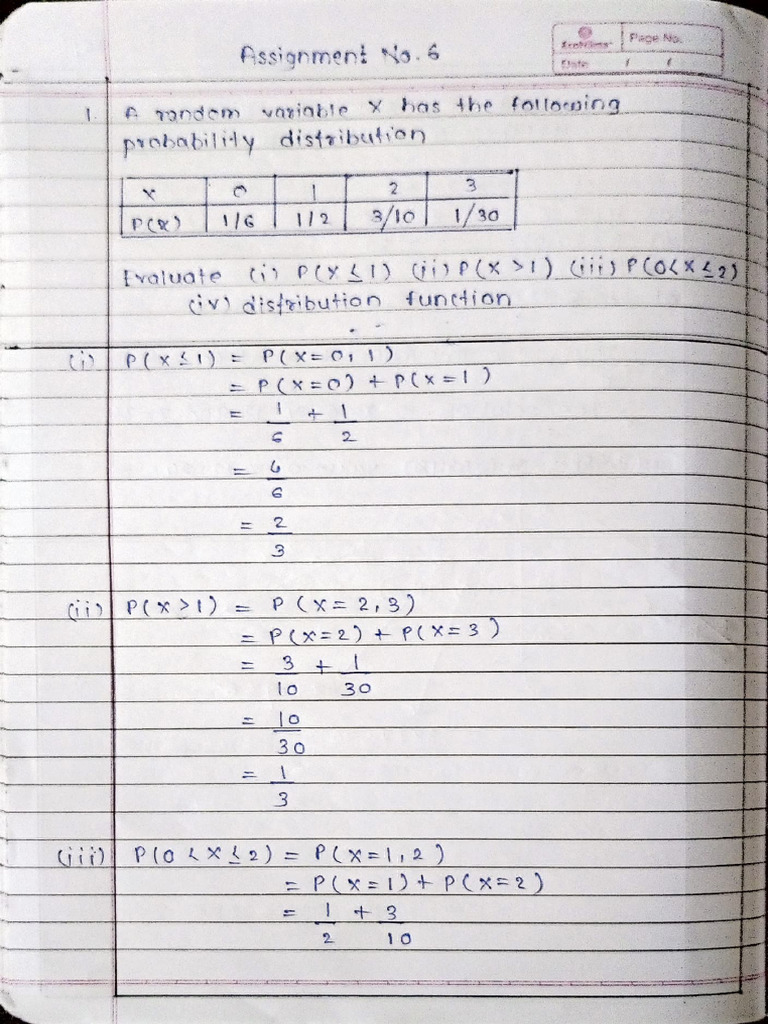 Assignment No. 6
Page No.
Date / /
1. A random variable X has the following
probability distribution
X 0 1 2 3
P(X) 1/6 1/2 3/10 1/30
Evaluate (i) P(X ≤ 1) (ii) P(X > 1) (iii) P(0 < X ≤ 2)
(iv) distribution function
(i) P(X ≤ 1) = P(X = 0, 1)
= P(X = 0) + P(X = 1)
= 1/6 + 1/2
= 4/6
= 2/3
(ii) P(X > 1) = P(X = 2, 3)
= P(X = 2) + P(X = 3)
= 3/10 + 1/30
= 10/30
= 1/3
(iii) P(0 < X ≤ 2) = P(X = 1, 2)
= P(X = 1) + P(X = 2)
= 1/2 + 3/10